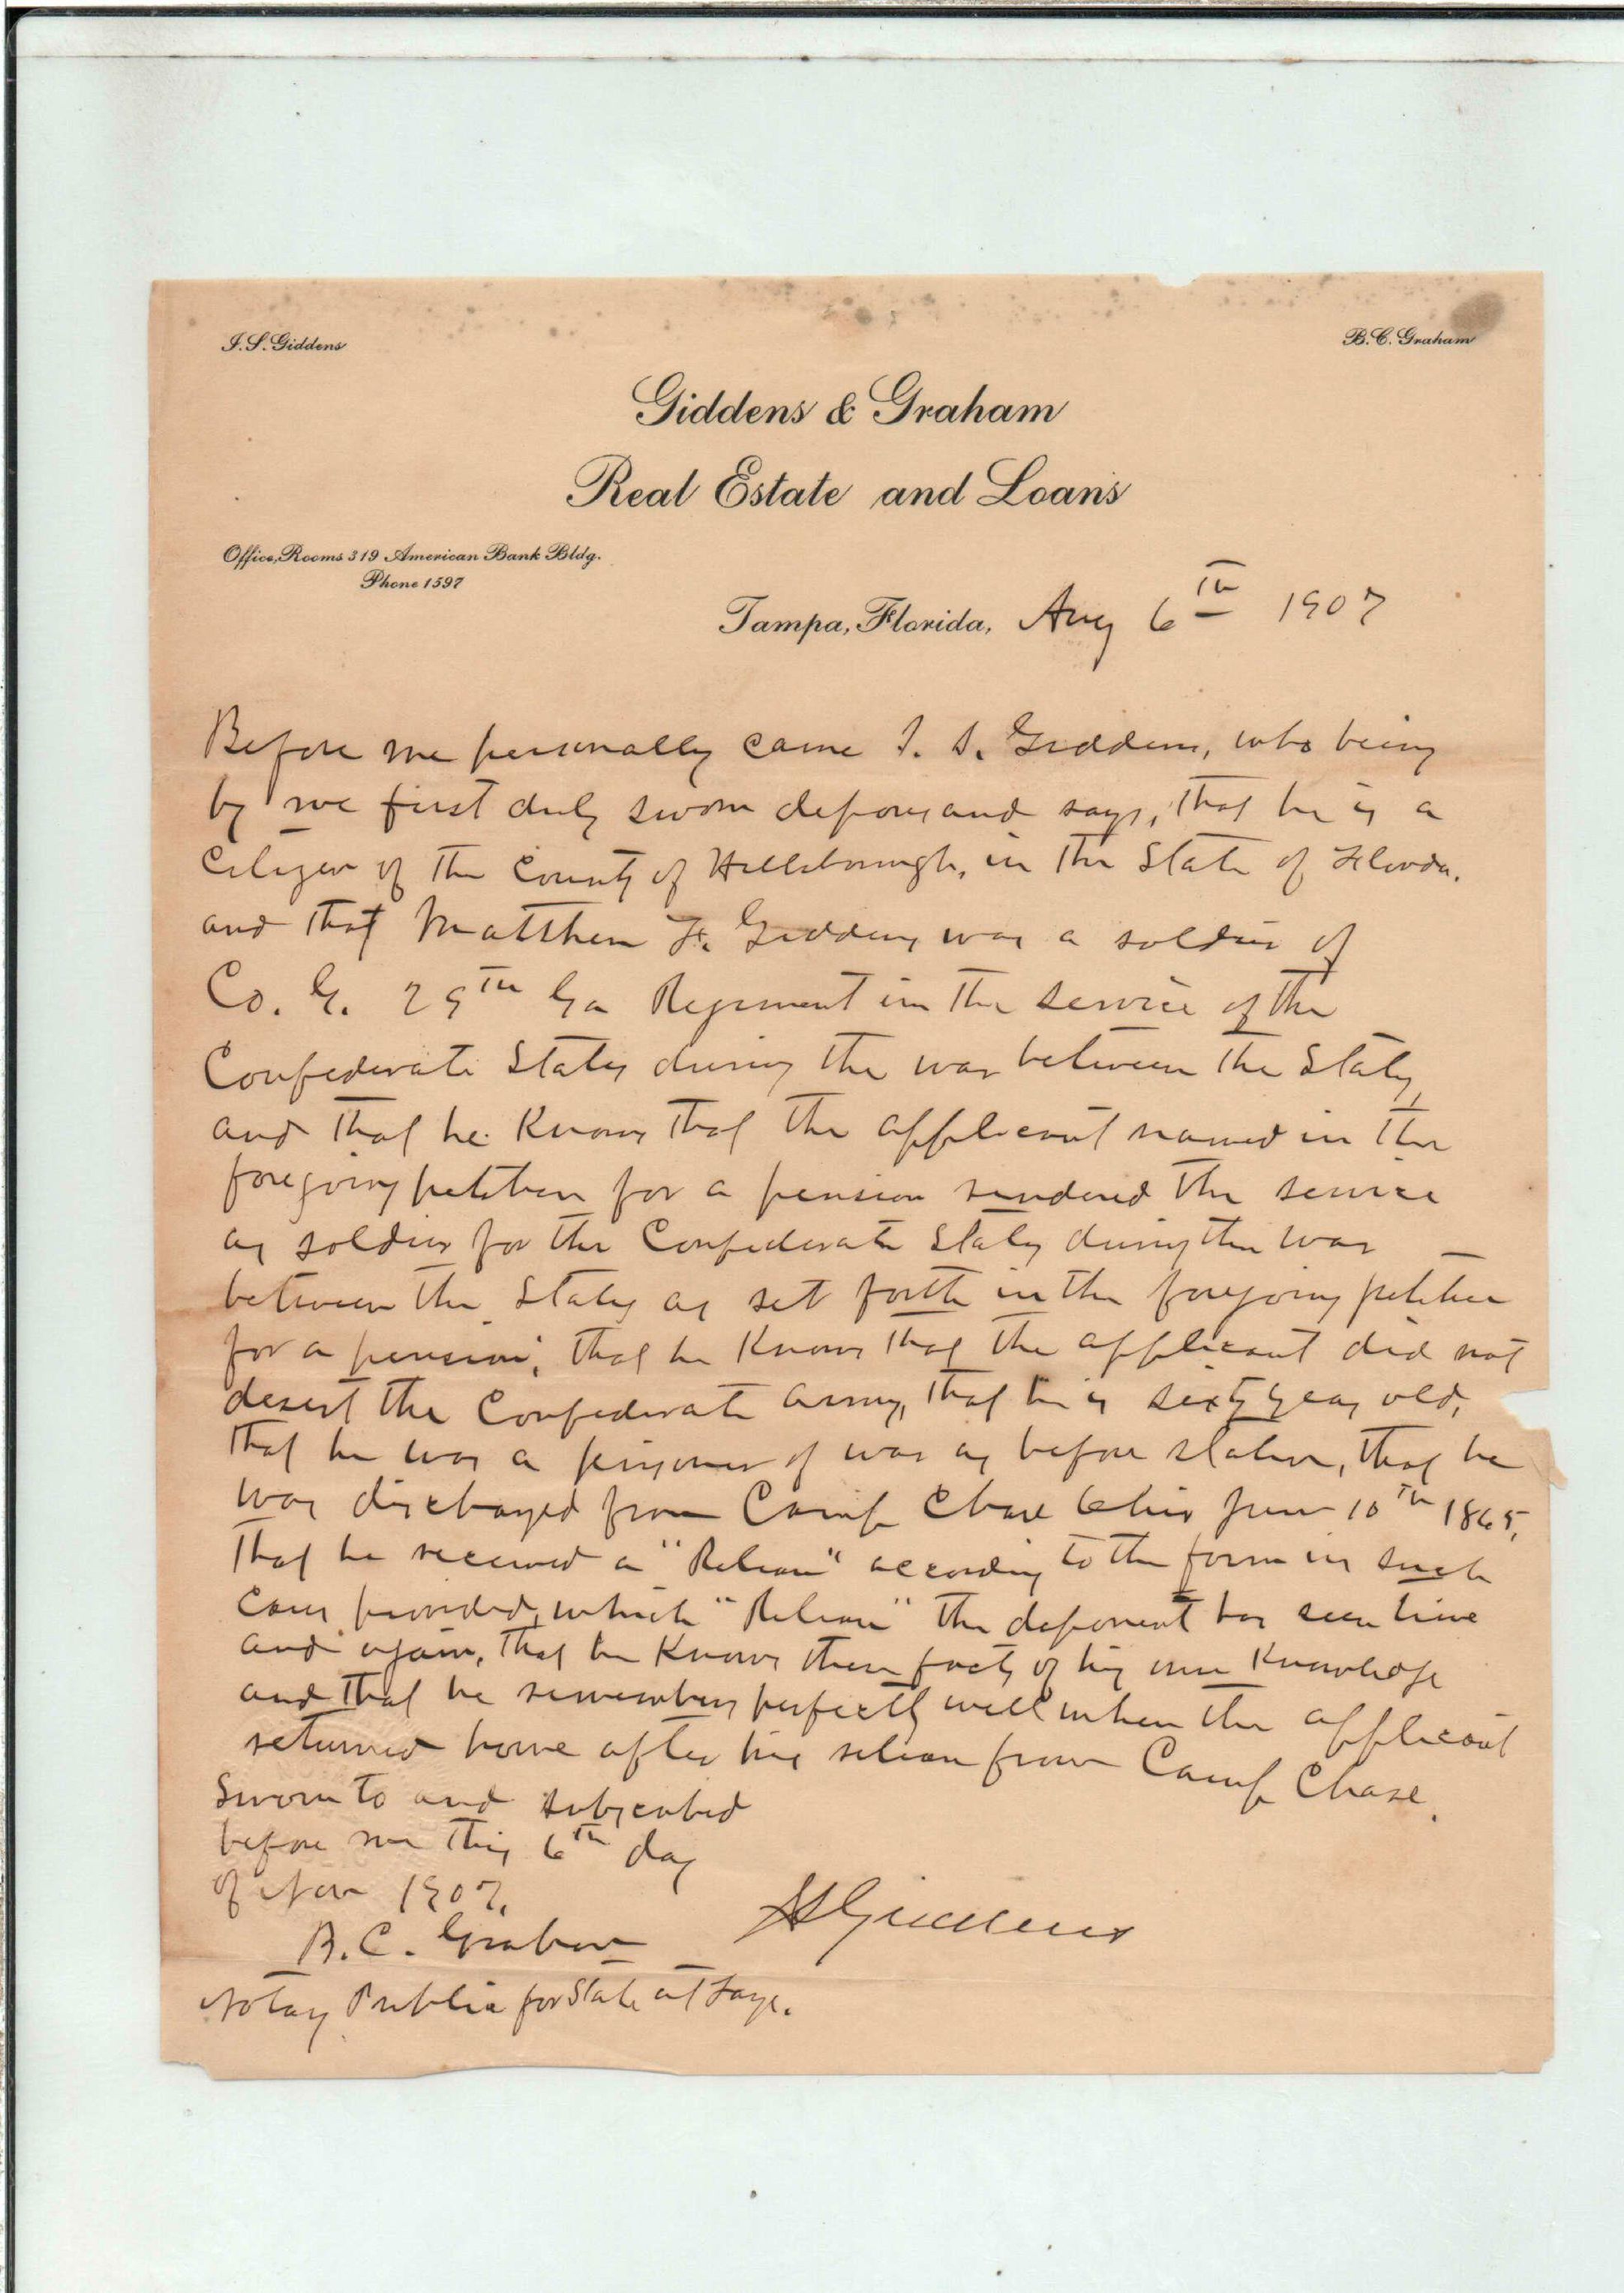 I. S. Giddens
B. C. Graham
Giddens & Graham
Real Estate and Loans
Office, Rooms 319 American Bank Bldg.
Phone 1597
Tampa, Florida, Aug 6th 1907
Before me personally came I. S. Giddens, who being
by me first duly sworn deposes and says, that he is a
Citizen of the County of Hillsborough, in the State of Florida.
and that Matthew F. Giddens was a soldier of
Co. G. 29th Ga Regiment in the service of the
Confederate States during the war between the States,
and that he Knows that the applicant named in the
foregoing petition for a pension rendered the service
as soldier for the Confederate States during the war
between the States as set forth in the foregoing petition
for a pension, that he Knows that the applicant did not
desert the Confederate Army, that he is sixty years old,
that he was a prisoner of war as before stated, that he
was discharged from Camp Chase Ohio June 10th 1865,
That he received a "Release" according to the form in such
cases provided, which "Release" the deponent has seen time
and again, that he Knows these facts of his own Knowledge
and that he remembers perfectly well when the applicant
returned home after his release from Camp Chase.
Sworn to and subscribed
before me this 6th day
of 1907.
B. C. Graham
I S Giddens
Notary Public for State at Large.